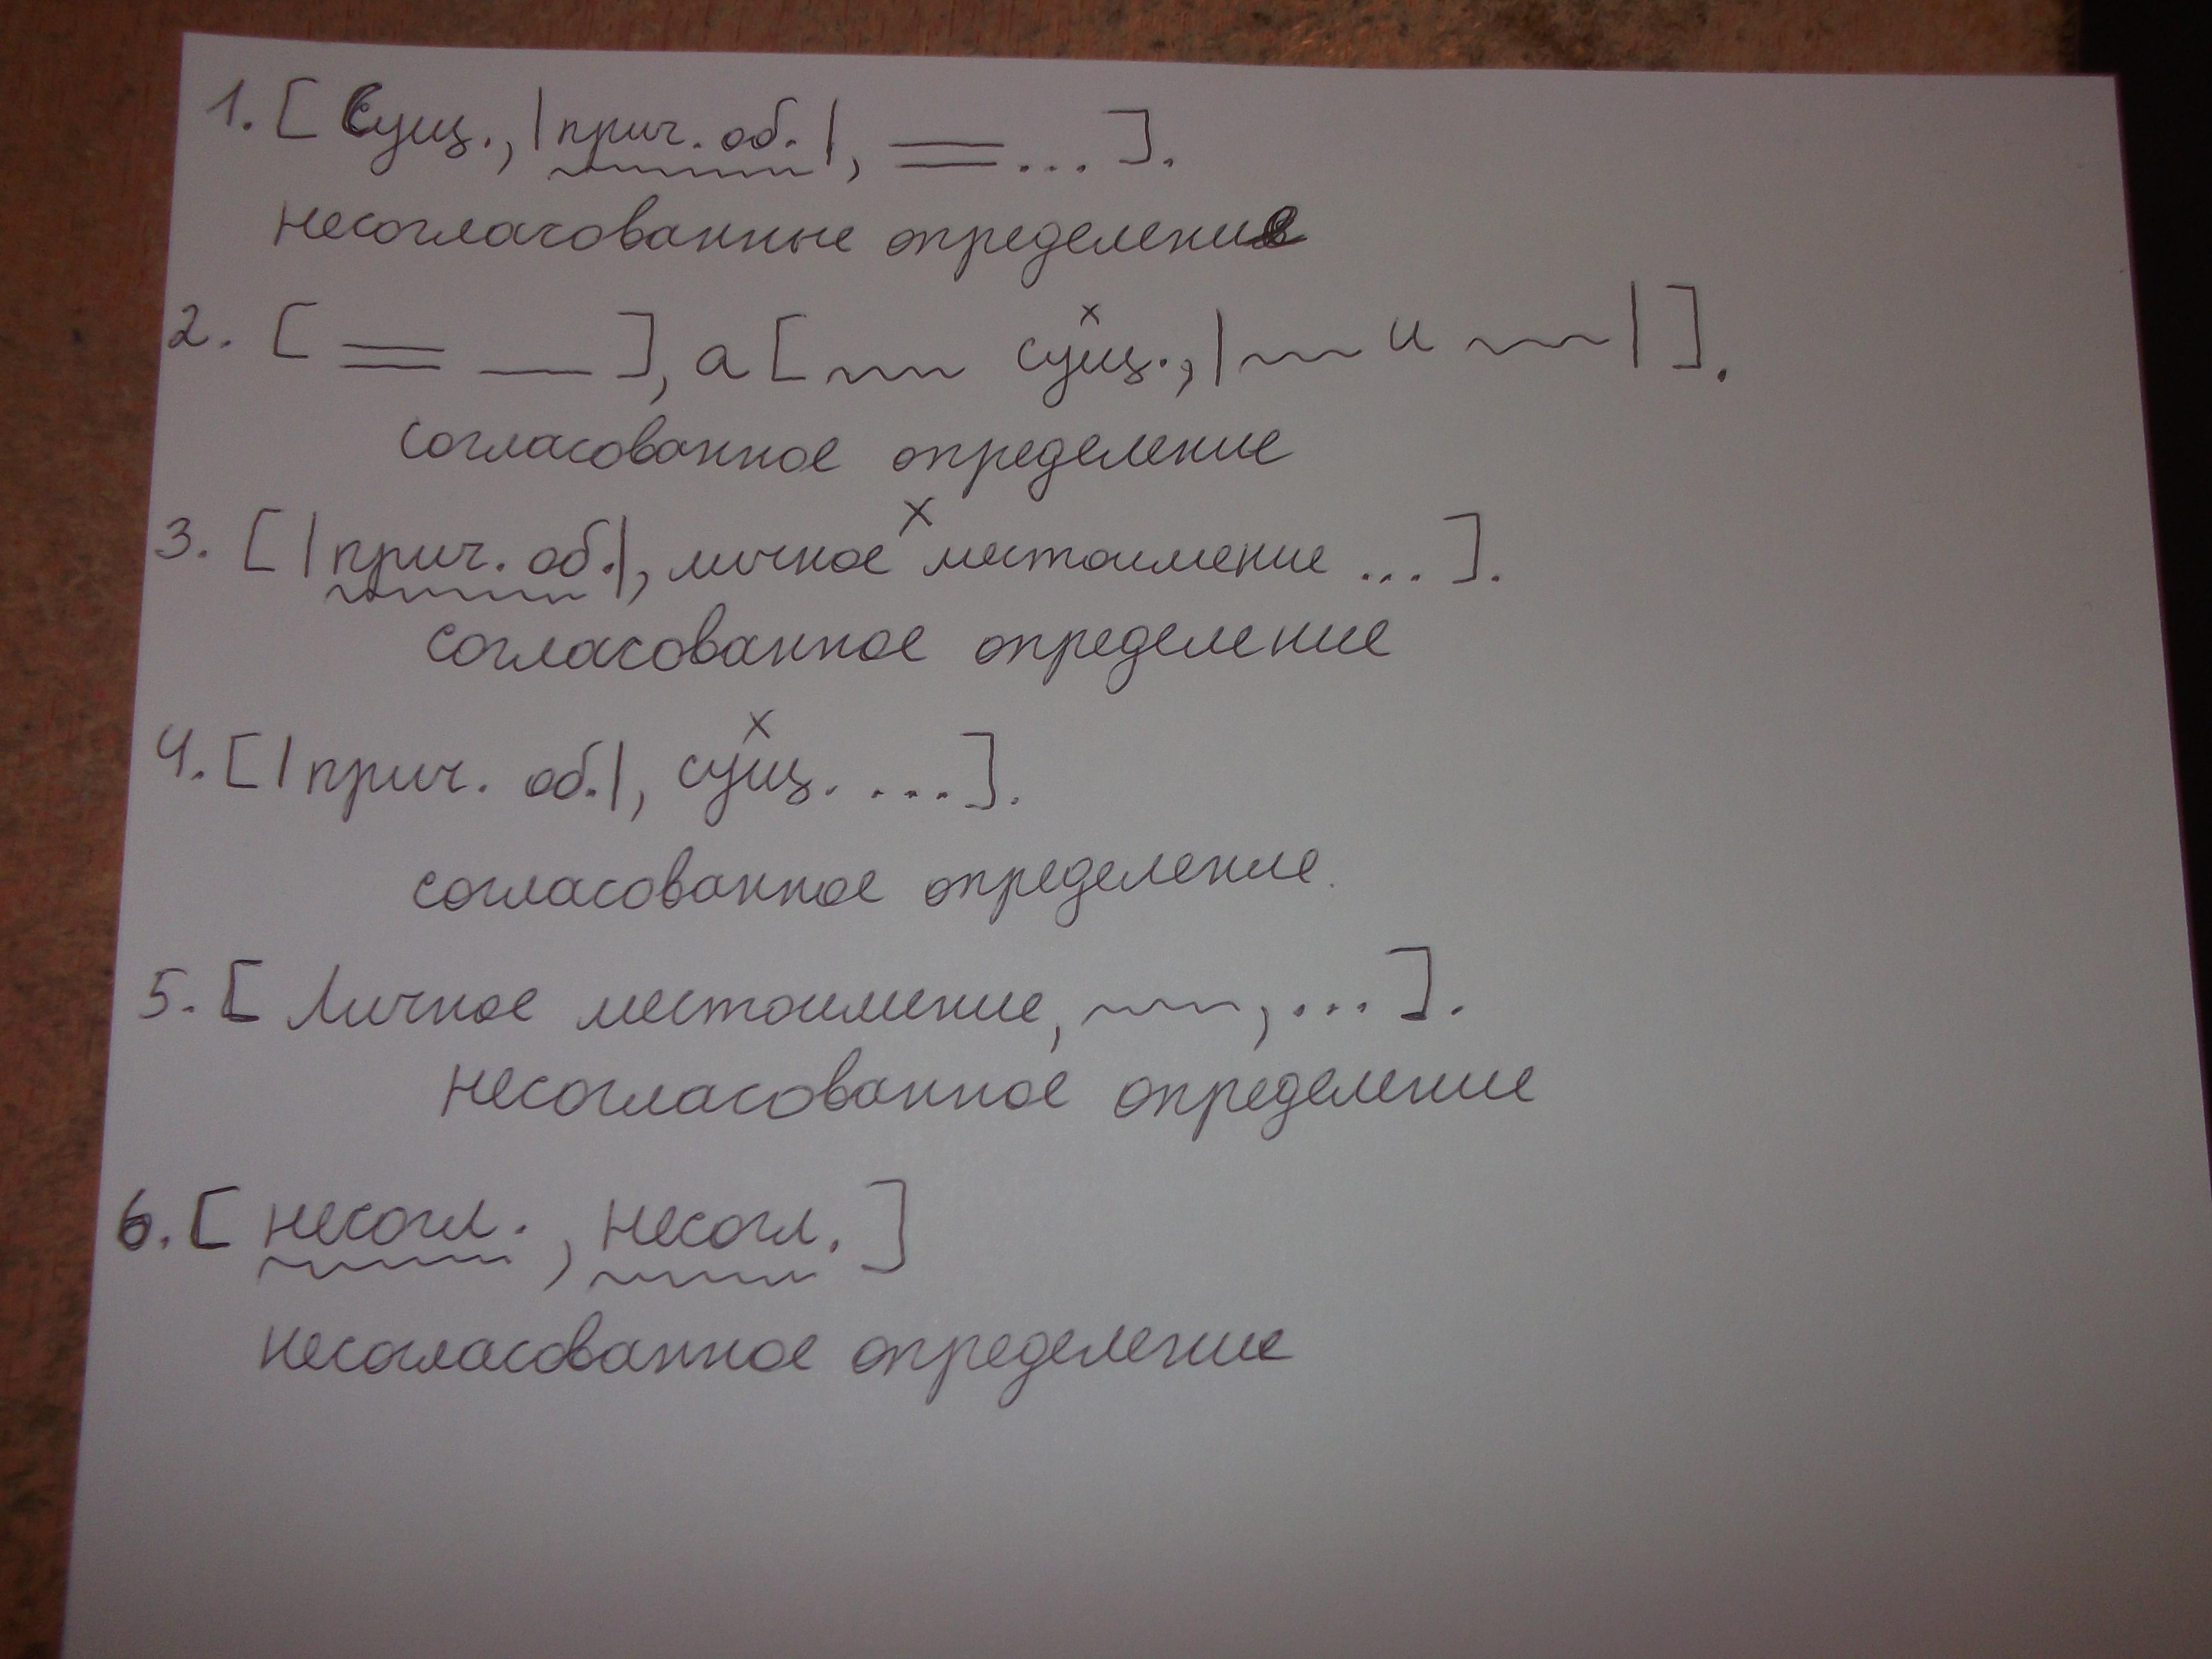 1. [ Сущ., |прич. об.|, ... ].
несогласованные определение
2. [ ], а [ сущ., | и | ].
согласованное определение
3. [ |прич. об.|, личное местоимение ... ].
согласованное определение
4. [ |прич. об.|, сущ. ... ].
согласованное определение.
5. [ Личное местоимение, , ... ].
несогласованное определение
6. [ несогл. , несогл. ]
несогласованное определение